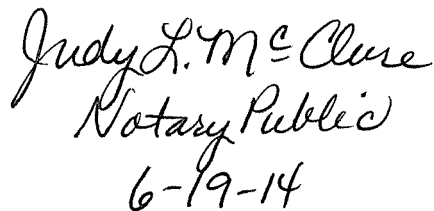 Judy L. McClure
Notary Public
6-19-14